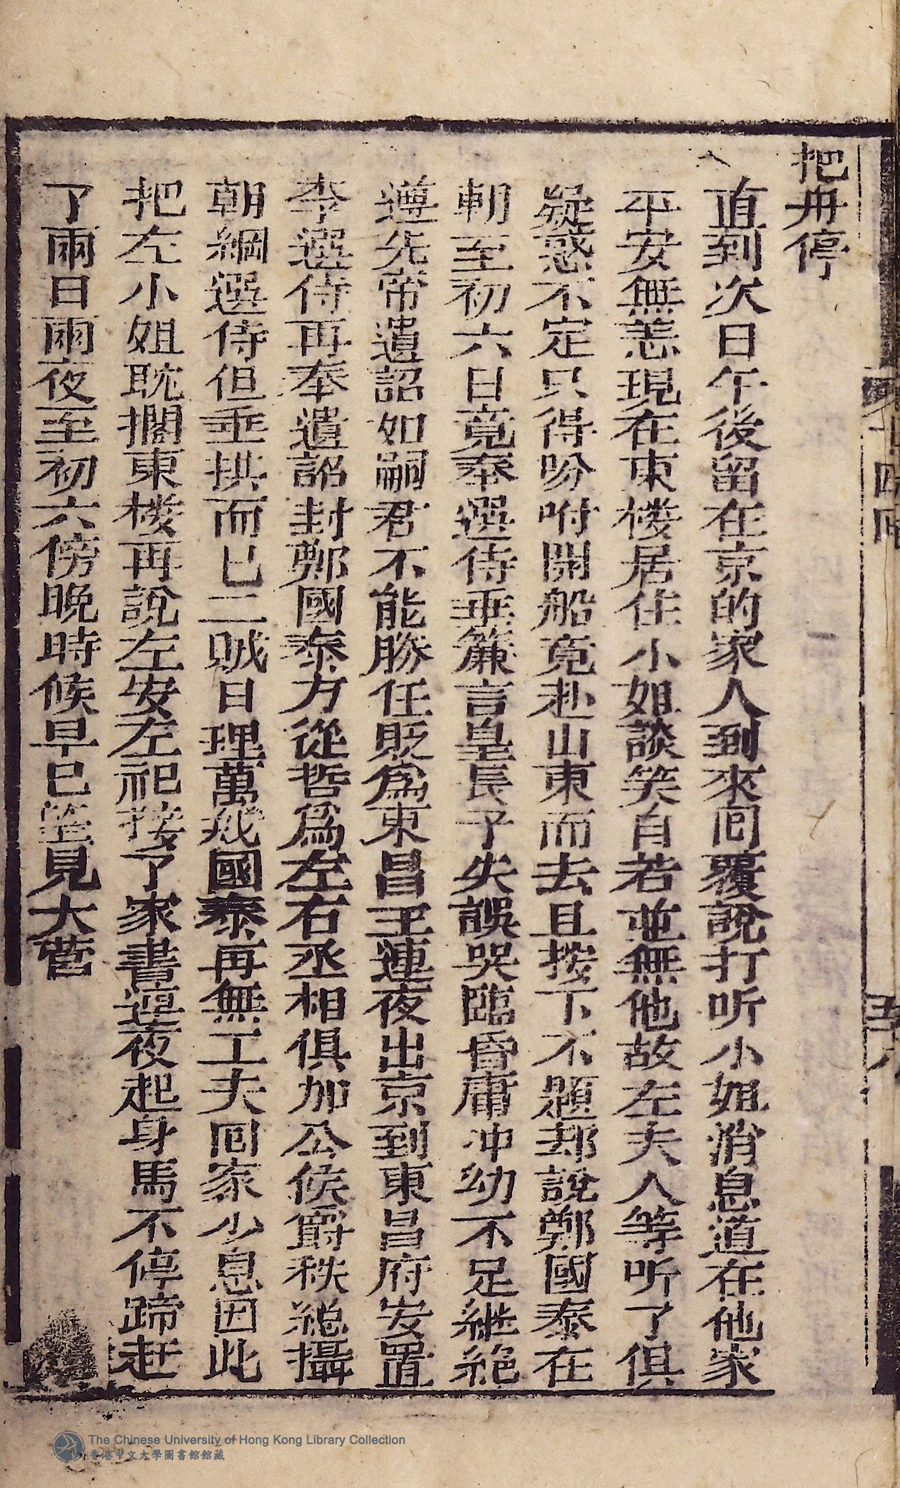 把舟停
直到次日午後留在京的家人到來囘覆說打听小姐消息道在他家
平安無恙現在東楼居住小姐談笑自若並無他故左夫人等听了俱
疑惑不定只得吩咐開船竟赴山東而去且按下不題却說鄭國泰在
朝至初六日竟奉選侍垂簾言皇長子失誤哭臨昏庸冲幼不足継絶
遵先帝遺詔如嗣君不能勝任貶爲東昌王連夜出京到東昌府安置
李選侍再奉遺詔封鄭國泰方從哲爲左右丞相俱加公侯爵秩総攝
朝綱選侍但垂拱而已二賊日理萬几國泰再無工夫囘家少息因此
把左小姐耽擱東楼再說左安左祀接了家書連夜起身馬不停蹄赶
了兩日兩夜至初六傍晚時候早已望見大營
十四囘
五十八
The Chinese University of Hong Kong Library Collection
香港中文大學圖書館館藏